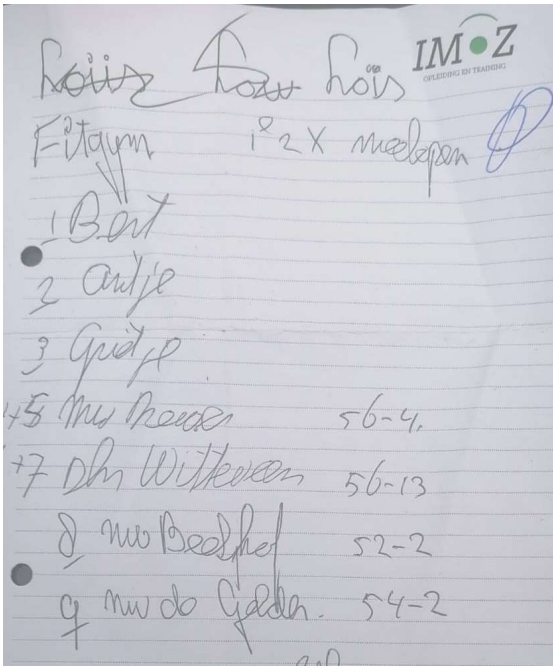 IMOZ
OPLEIDING EN TRAINING
Loïs
Fitgym 1e 2X meelopen
1 Bert
2 Antje
3 Grietje
+5 mw 56-4.
+7 Dhr Witteveen 56-13
8 mw 52-2
9 mw de Gelder. 54-2